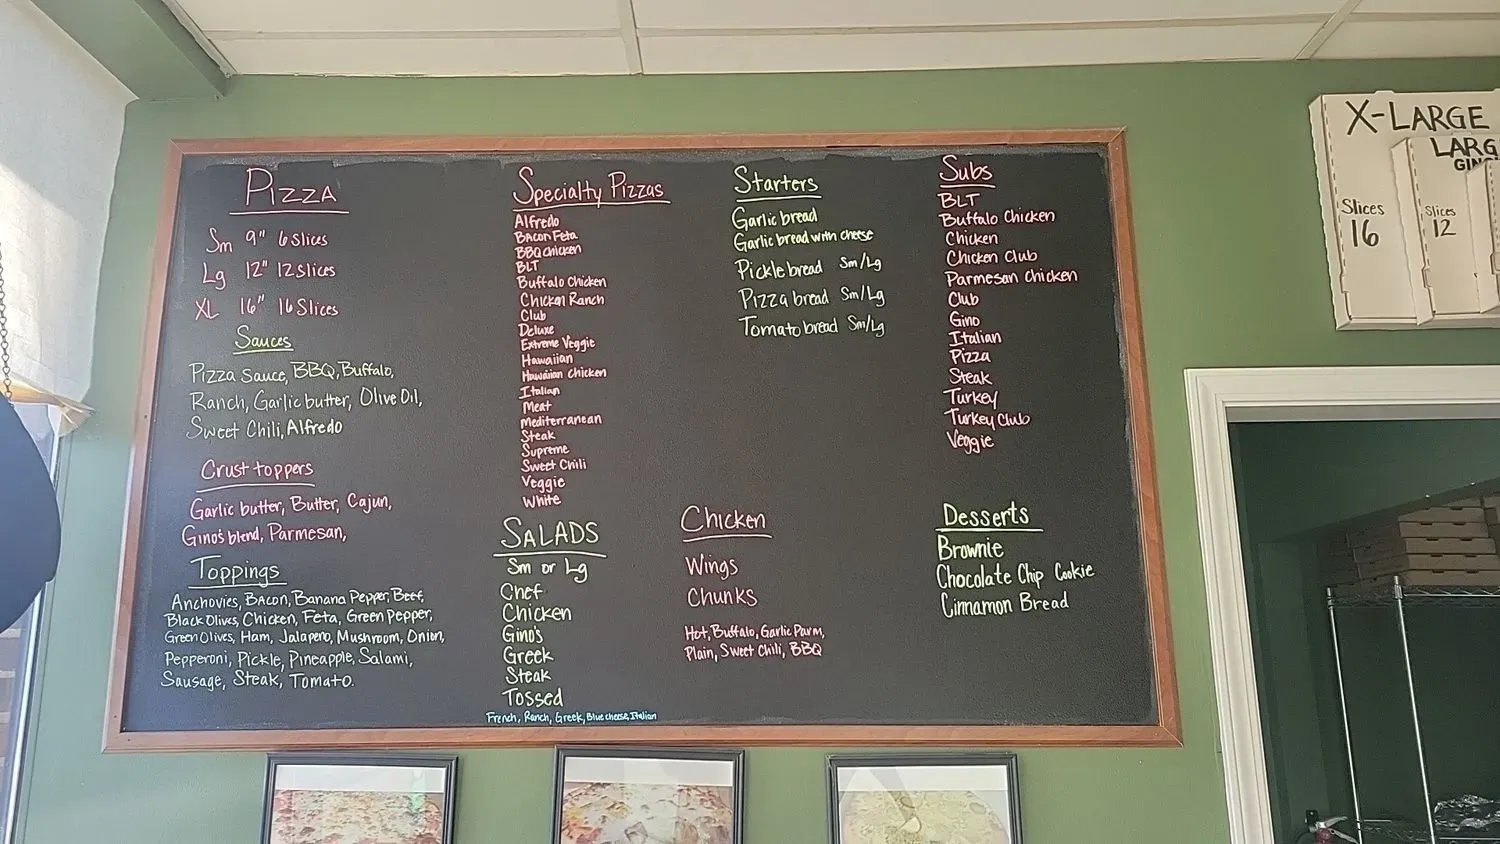 Pizza
Sm 9" 6 Slices
Lg 12" 12 slices
XL 16" 16 Slices
Sauces
Pizza Sauce, BBQ, Buffalo,
Ranch, Garlic butter, Olive Oil,
Sweet Chili, Alfredo
Crust toppers
Garlic butter, Butter, Cajun,
Gino's blend, Parmesan,
Toppings
Anchovies, Bacon, Banana Pepper, Beef,
Black Olives, Chicken, Feta, Green Pepper,
Green Olives, Ham, Jalapeno, Mushroom, Onion,
Pepperoni, Pickle, Pineapple, Salami,
Sausage, Steak, Tomato.
Specialty Pizzas
Alfredo
Bacon Feta
BBQ chicken
BLT
Buffalo Chicken
Chicken Ranch
Club
Deluxe
Extreme Veggie
Hawaiian
Hawaiian Chicken
Italian
Meat
Mediterranean
Steak
Supreme
Sweet Chili
Veggie
White
SALADS
Sm or Lg
Chef
Chicken
Gino's
Greek
Steak
Tossed
French, Ranch, Greek, Blue cheese, Italian
Starters
Garlic bread
Garlic bread with cheese
Pickle bread Sm/Lg
Pizza bread Sm/Lg
Tomato bread Sm/Lg
Chicken
Wings
Chunks
Hot, Buffalo, Garlic Parm,
Plain, Sweet Chili, BBQ
Subs
BLT
Buffalo Chicken
Chicken
Chicken Club
Parmesan chicken
Club
Gino
Italian
Pizza
Steak
Turkey
Turkey Club
Veggie
Desserts
Brownie
Chocolate Chip Cookie
Cinnamon Bread
X-LARGE
Slices
16
LARG
Slices
12